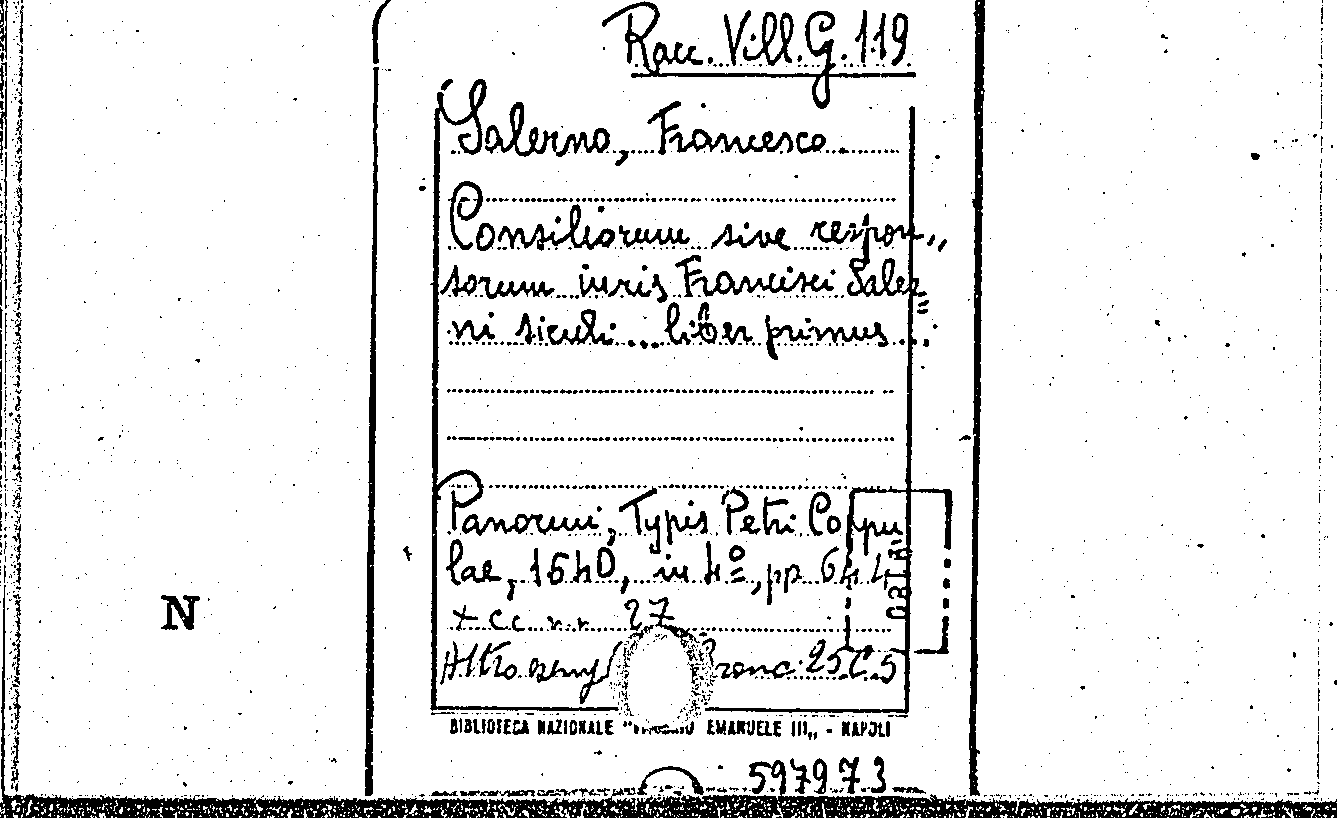 Racc. Vill. G. 119
Salerno, Francesco.
Consiliorum sive respon„
sorum iuris Francisci Saler=
ni siculi ... liber primus ...
Panormi, Typis Petri Coppu=
lae, 1640, in 4º, pp 644
+ cc n.n. 27
Altro 25 C. 5
N
BIBLIOTECA NAZIONALE EMANUELE III„ - NAPOLI
597973